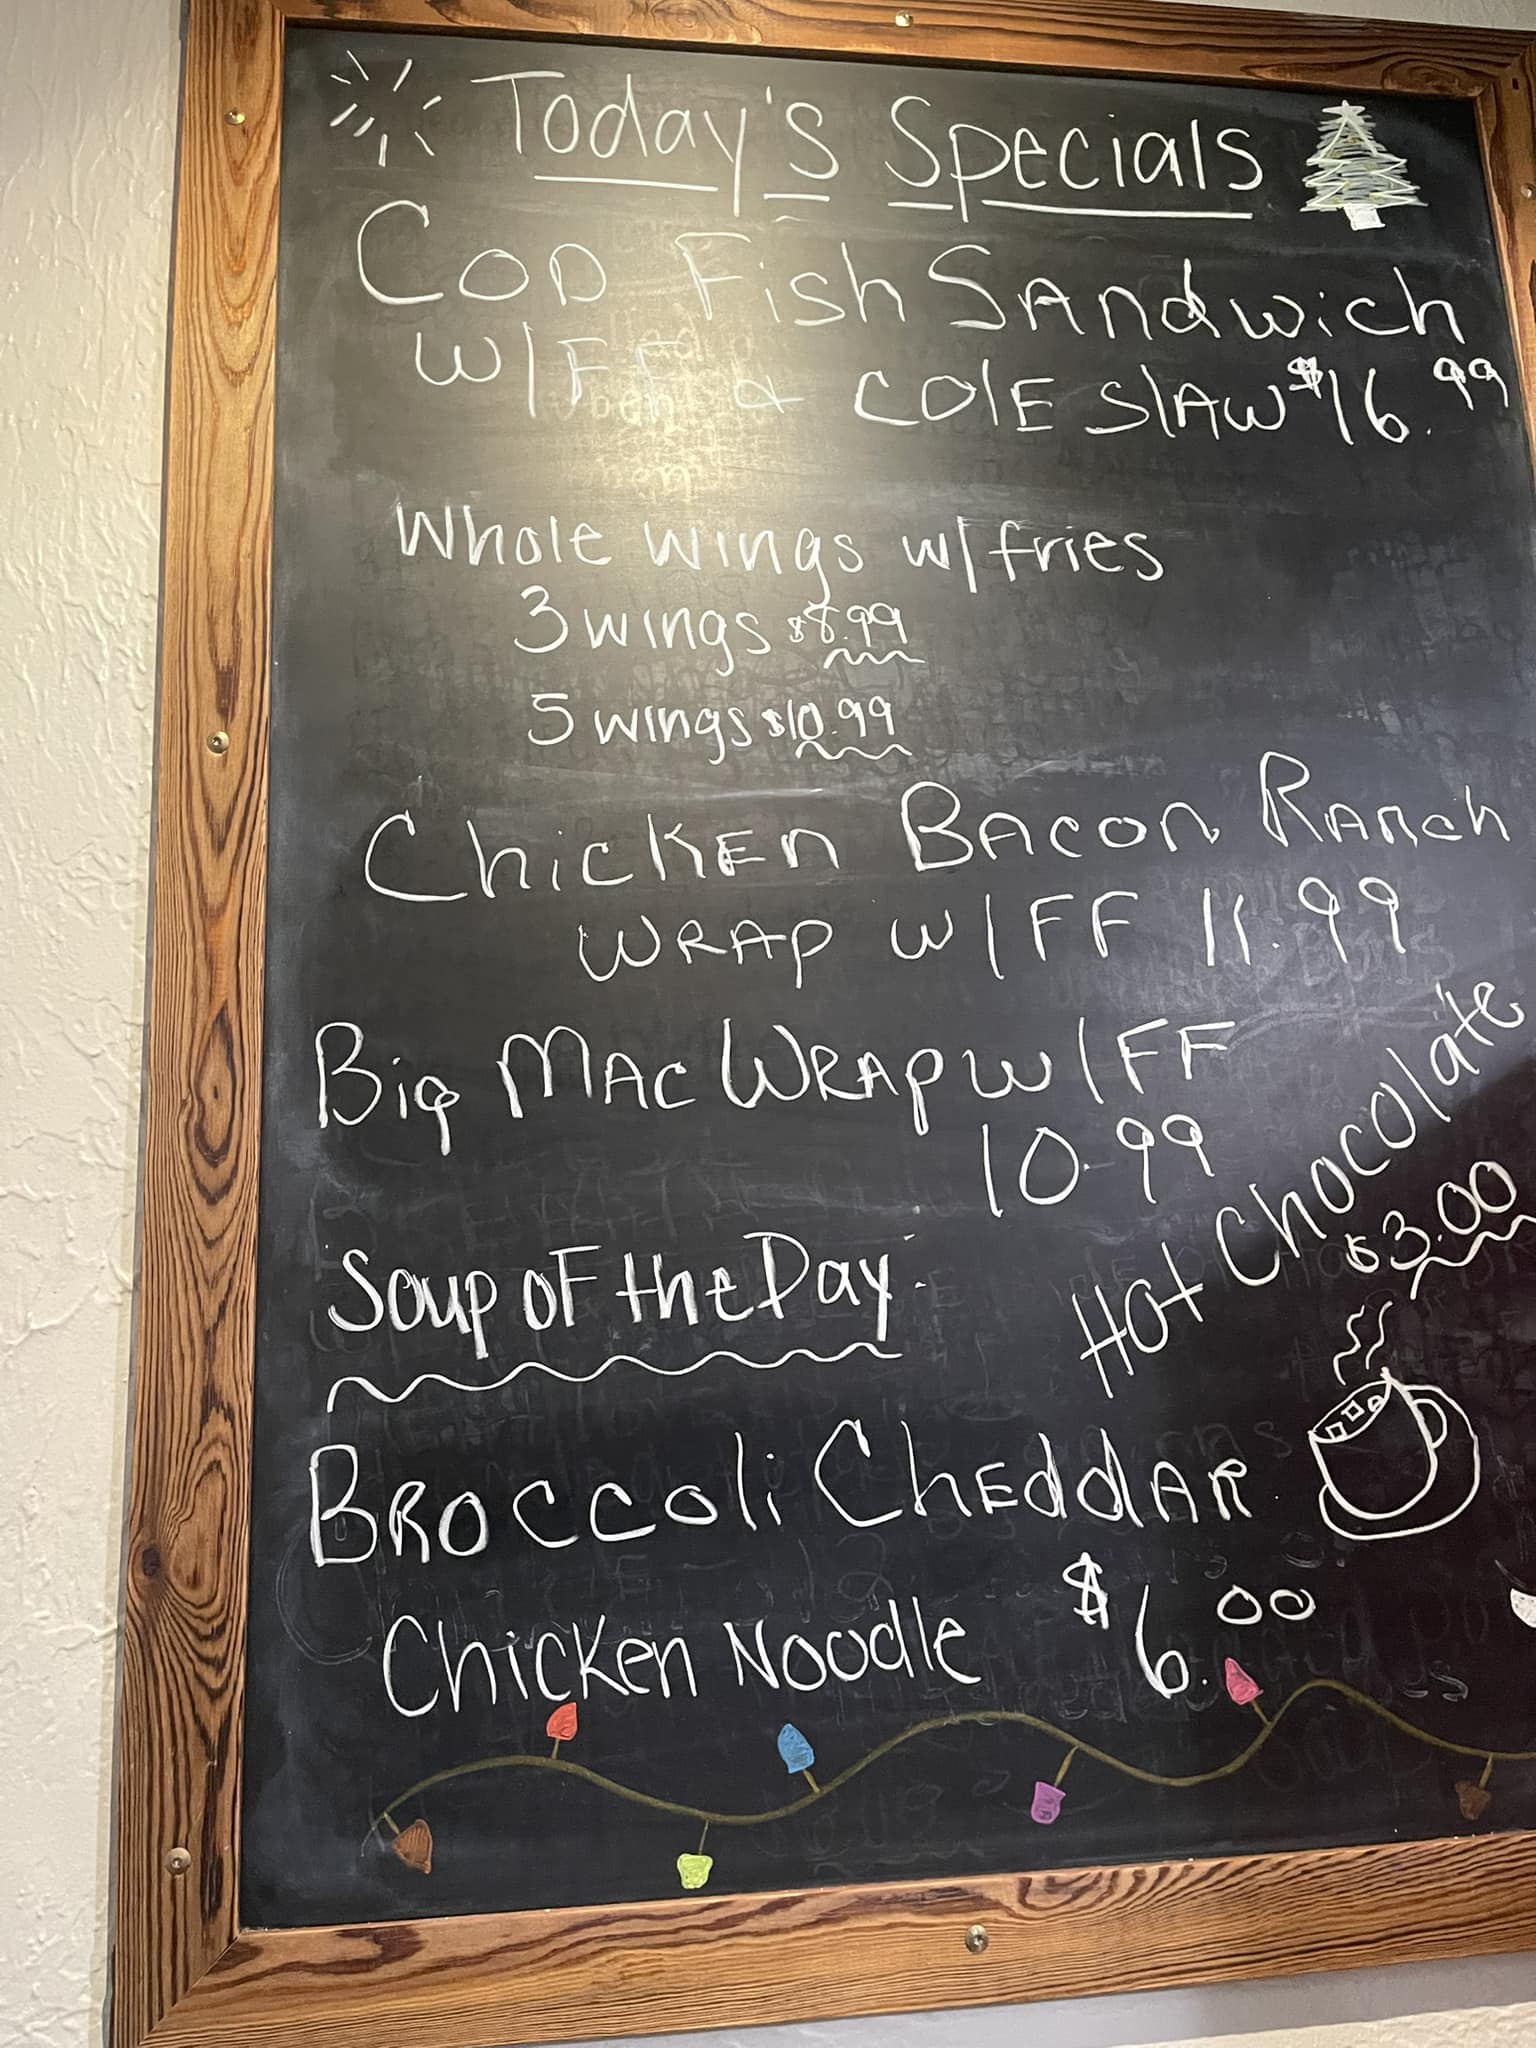 Today's Specials
COD Fish SANdwich
W/FF & COlE SlAW $16.99
Whole wings w/fries
3 wings $8.99
5 wings $10.99
ChickEn BACON RANch
WRAP W/FF 11.99
Big MAC WRAP W/FF
10.99
Hot Chocolate
$3.00
Soup OF the Day:
BROCCOli ChEddAR
$6.00
Chicken Noodle